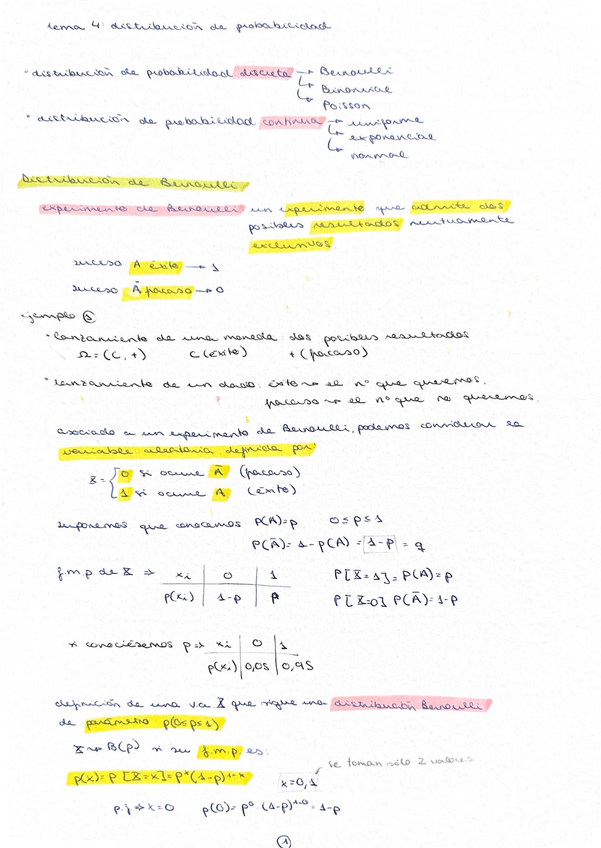 tema 4: distribución de probabilidad
· distribución de probabilidad discreta → Bernoulli
↳ Binomial
↳ Poisson
· distribución de probabilidad continua → uniforme
↳ exponencial
↳ normal
Distribución de Bernoulli
experimento de Bernoulli un experimento que admite dos
posibles resultados mutuamente
exclusivos
suceso A éxito → 1
suceso Ā fracaso → 0
ejemplo
· lanzamiento de una moneda: dos posibles resultados
Ω = (C, +) C (éxito) + (fracaso)
· lanzamiento de un dado: éxito → el nº que queremos.
fracaso → el nº que no queremos.
asociado a un experimento de Bernoulli, podemos considerar la
variable aleatoria definida por:
X = { 0 si ocurre Ā (fracaso)
1 si ocurre A (éxito)
suponemos que conocemos P(A)=p 0≤p≤1
P(Ā)= 1-p(A) = 1-p = q
f.m.p de X ⇒ xi 0 1 P[X=1]=P(A)=p
p(xi) 1-p p P[X=0] P(Ā)=1-p
* conociésemos p ⇒ xi 0 1
p(xi) 0,05 0,95
definición de una v.a X que sigue una distribución Bernoulli
de parámetro p(0≤p≤1)
X → B(p) si su f.m.p es:
se toman sólo 2 valores
p(x)=p [X=x]=pˣ(1-p)¹⁻ˣ x=0,1
p.j ⇒ x=0 p(0)=p⁰·(1-p)¹⁻⁰=1-p
1